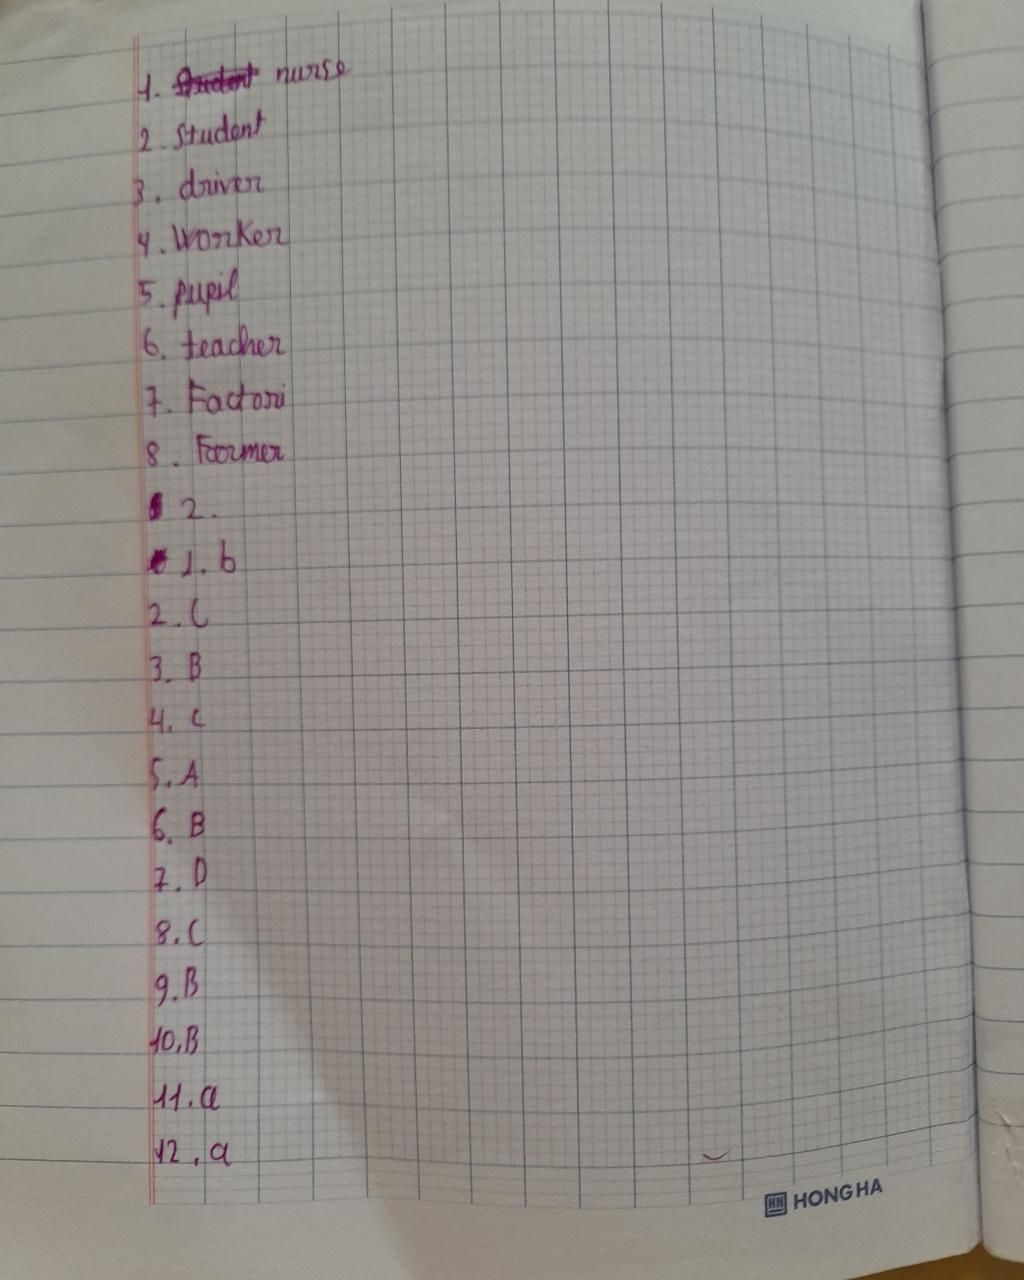 1. Student nurse
2. Student
3. driver
4. Worker
5. pupil
6. teacher
7. Factori
8. Farmer
2.
1. b
2. C
3. B
4. C
5. A
6. B
7. D
8. C
9. B
10. B
11. a
12. a
HONG HA